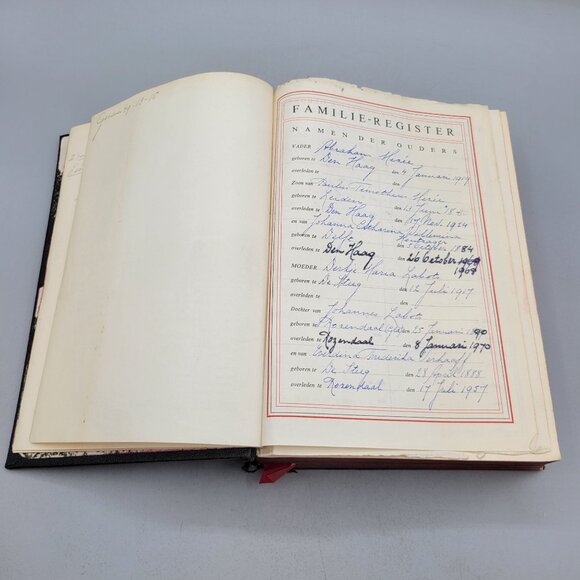 29-12-15
FAMILIE-REGISTER
NAMEN DER OUDERS
VADER Abraham
geboren te Den Haag den 4 Januari 1919
overleden te den
Zoon van Paulus Timotheus
geboren te Leiden den Juni 18
overleden te Den Haag den 14 Nov. 1924
en van Johanna Catharina Wilhelmina
geboren te Delft den October 1884
overleden te Den Haag den 26 October 1968
MOEDER Maria
geboren te De Steeg den 12 Juli 1917
overleden te den
Dochter van Johannes
geboren te Rosendaal den 25 Januari 1890
overleden te Rozendaal den 8 Januari 1970
en van Frederika
geboren te De Steeg den 28 April 1888
overleden te Rozendaal den 17 Juli 1957